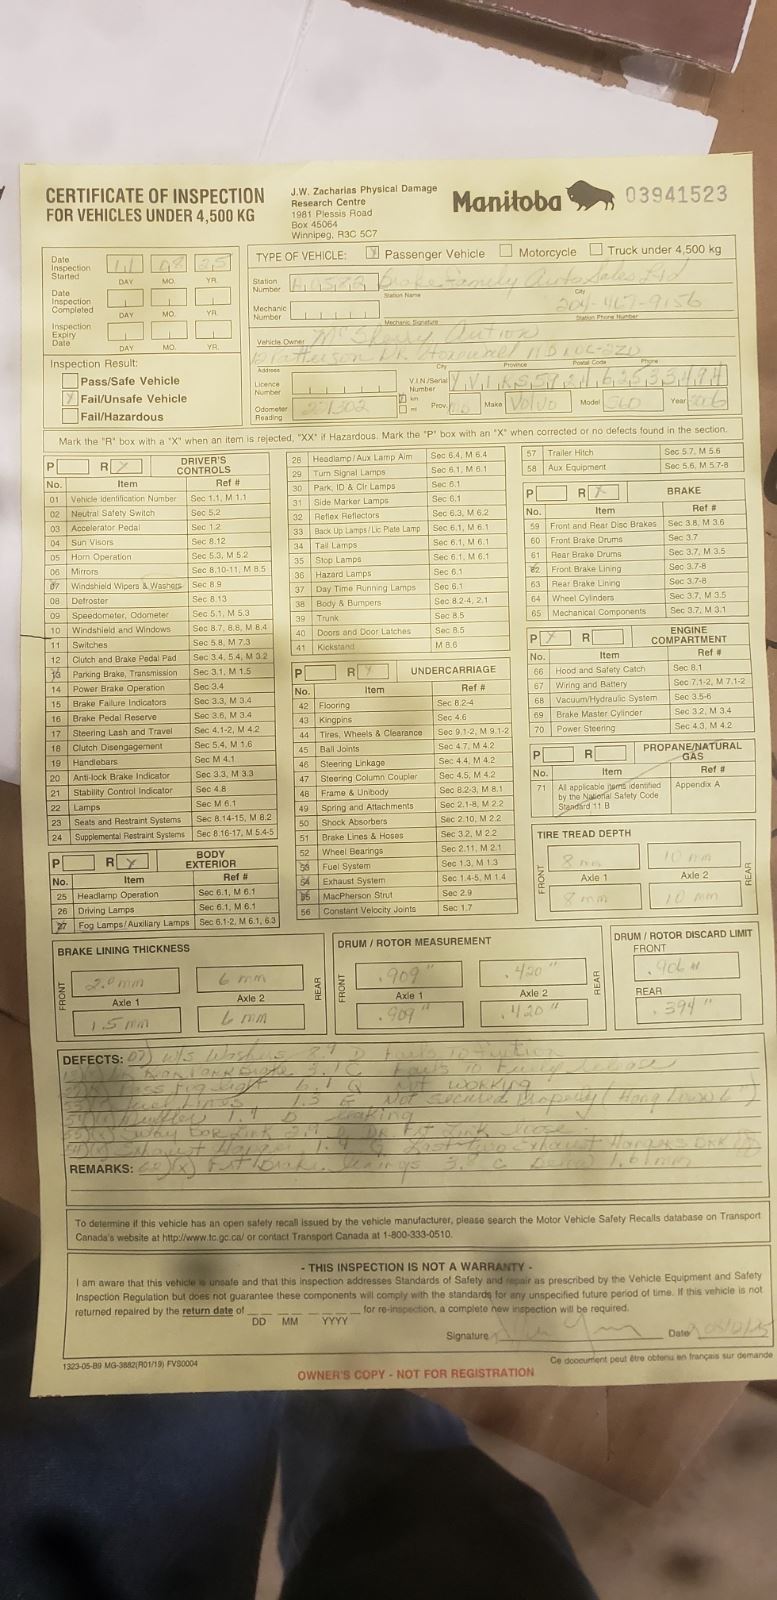 CERTIFICATE OF INSPECTION
FOR VEHICLES UNDER 4,500 KG
J.W. Zacharias Physical Damage
Research Centre
1981 Plessis Road
Box 45064
Winnipeg, R3C 5C7
Manitoba 03941523
Date
Inspection
Started
11 08 25
DAY MO. YR.
Date
Inspection
Completed
DAY MO. YR.
Inspection
Expiry
Date
DAY MO. YR.
Inspection Result:
Pass/Safe Vehicle
X Fail/Unsafe Vehicle
Fail/Hazardous
TYPE OF VEHICLE: X Passenger Vehicle Motorcycle Truck under 4,500 kg
Station
Number
Family Auto Sales Ltd
Station Name City
Mechanic
Number
204-467-9156
Mechanic Signature Station Phone Number
Vehicle Owner McSherry Auction
Patterson Dr. Stonewall MB R0C-2Z0
Address City Province Postal Code Phone
Licence
Number
V.I.N./Serial
Number
Odometer
Reading
km
mi
Prov. MB Make Volvo Model S60 Year 2006
Mark the "R" box with a "X" when an item is rejected, "XX" if Hazardous. Mark the "P" box with an "X" when corrected or no defects found in the section.
P R X DRIVER'S
CONTROLS
No. Item Ref #
01 Vehicle Identification Number Sec 1.1, M 1.1
02 Neutral Safety Switch Sec 5.2
03 Accelerator Pedal Sec 1.2
04 Sun Visors Sec 8.12
05 Horn Operation Sec 5.3, M 5.2
06 Mirrors Sec 8.10-11, M 8.5
07 Windshield Wipers & Washers Sec 8.9
08 Defroster Sec 8.13
09 Speedometer, Odometer Sec 5.1, M 5.3
10 Windshield and Windows Sec 8.7, 8.8, M 8.4
11 Switches Sec 5.8, M 7.3
12 Clutch and Brake Pedal Pad Sec 3.4, 5.4, M 3.2
13 Parking Brake, Transmission Sec 3.1, M 1.5
14 Power Brake Operation Sec 3.4
15 Brake Failure Indicators Sec 3.3, M 3.4
16 Brake Pedal Reserve Sec 3.6, M 3.4
17 Steering Lash and Travel Sec 4.1-2, M 4.2
18 Clutch Disengagement Sec 5.4, M 1.6
19 Handlebars Sec M 4.1
20 Anti-lock Brake Indicator Sec 3.3, M 3.3
21 Stability Control Indicator Sec 4.8
22 Lamps Sec M 6.1
23 Seats and Restraint Systems Sec 8.14-15, M 8.2
24 Supplemental Restraint Systems Sec 8.16-17, M 5.4-5
P R X BODY
EXTERIOR
No. Item Ref #
25 Headlamp Operation Sec 6.1, M 6.1
26 Driving Lamps Sec 6.1, M 6.1
27 Fog Lamps/Auxiliary Lamps Sec 6.1-2, M 6.1, 6.3
28 Headlamp/Aux Lamp Aim Sec 6.4, M 6.4
29 Turn Signal Lamps Sec 6.1, M 6.1
30 Park, ID & Clr Lamps Sec 6.1
31 Side Marker Lamps Sec 6.1
32 Reflex Reflectors Sec 6.3, M 6.2
33 Back Up Lamps/Lic Plate Lamp Sec 6.1, M 6.1
34 Tail Lamps Sec 6.1, M 6.1
35 Stop Lamps Sec 6.1, M 6.1
36 Hazard Lamps Sec 6.1
37 Day Time Running Lamps Sec 6.1
38 Body & Bumpers Sec 8.2-4, 2.1
39 Trunk Sec 8.5
40 Doors and Door Latches Sec 8.5
41 Kickstand M 8.6
P R X UNDERCARRIAGE
No. Item Ref #
42 Flooring Sec 8.2-4
43 Kingpins Sec 4.6
44 Tires, Wheels & Clearance Sec 9.1-2, M 9.1-2
45 Ball Joints Sec 4.7, M 4.2
46 Steering Linkage Sec 4.4, M 4.2
47 Steering Column Coupler Sec 4.5, M 4.2
48 Frame & Unibody Sec 8.2-3, M 8.1
49 Spring and Attachments Sec 2.1-8, M 2.2
50 Shock Absorbers Sec 2.10, M 2.2
51 Brake Lines & Hoses Sec 3.2, M 2.2
52 Wheel Bearings Sec 2.11, M 2.1
53 Fuel System Sec 1.3, M 1.3
54 Exhaust System Sec 1.4-5, M 1.4
55 MacPherson Strut Sec 2.9
56 Constant Velocity Joints Sec 1.7
57 Trailer Hitch Sec 5.7, M 5.6
58 Aux Equipment Sec 5.6, M 5.7-8
P R X BRAKE
No. Item Ref #
59 Front and Rear Disc Brakes Sec 3.8, M 3.6
60 Front Brake Drums Sec 3.7
61 Rear Brake Drums Sec 3.7, M 3.5
62 Front Brake Lining Sec 3.7-8
63 Rear Brake Lining Sec 3.7-8
64 Wheel Cylinders Sec 3.7, M 3.5
65 Mechanical Components Sec 3.7, M 3.1
P X R ENGINE
COMPARTMENT
No. Item Ref #
66 Hood and Safety Catch Sec 8.1
67 Wiring and Battery Sec 7.1-2, M 7.1-2
68 Vacuum/Hydraulic System Sec 3.5-6
69 Brake Master Cylinder Sec 3.2, M 3.4
70 Power Steering Sec 4.3, M 4.2
P R PROPANE/NATURAL
GAS
No. Item Ref #
71 All applicable items identified
by the National Safety Code
Standard 11 B
Appendix A
TIRE TREAD DEPTH
FRONT 8 mm 10 mm REAR
Axle 1 Axle 2
8 mm 10 mm
BRAKE LINING THICKNESS
FRONT 2.0 mm 6 mm REAR
Axle 1 Axle 2
1.5 mm 6 mm
DRUM / ROTOR MEASUREMENT
FRONT .909" .420" REAR
Axle 1 Axle 2
.909" .420"
DRUM / ROTOR DISCARD LIMIT
FRONT
.906"
REAR
.394"
DEFECTS: 07) w/s Washers 8.9 D Fails to Function
3.1 C Fails to Fully release
Fog light 6.1 Q Not working
Fuel Lines 1.3 E Not Secured Properly (Hang Low x 6")
54)(x) Muffler 1.4 D leaking
55)(x) Sway Bar Link 2.9 Frt Link loose
54)(x) Exhaust Hanger 1.4 G Exhaust Hangers
REMARKS: 62)(x) Frt Brake Linings 3.8 C
To determine if this vehicle has an open safety recall issued by the vehicle manufacturer, please search the Motor Vehicle Safety Recalls database on Transport
Canada's website at http://www.tc.gc.ca/ or contact Transport Canada at 1-800-333-0510.
- THIS INSPECTION IS NOT A WARRANTY -
I am aware that this vehicle is unsafe and that this inspection addresses Standards of Safety and repair as prescribed by the Vehicle Equipment and Safety
Inspection Regulation but does not guarantee these components will comply with the standards for any unspecified future period of time. If this vehicle is not
returned repaired by the return date of __ __ ____ for re-inspection, a complete new inspection will be required.
DD MM YYYY
Signature Date
1323-05-B9 MG-3882(R01/19) FVS0004
OWNER'S COPY - NOT FOR REGISTRATION
Ce document peut être obtenu en français sur demande